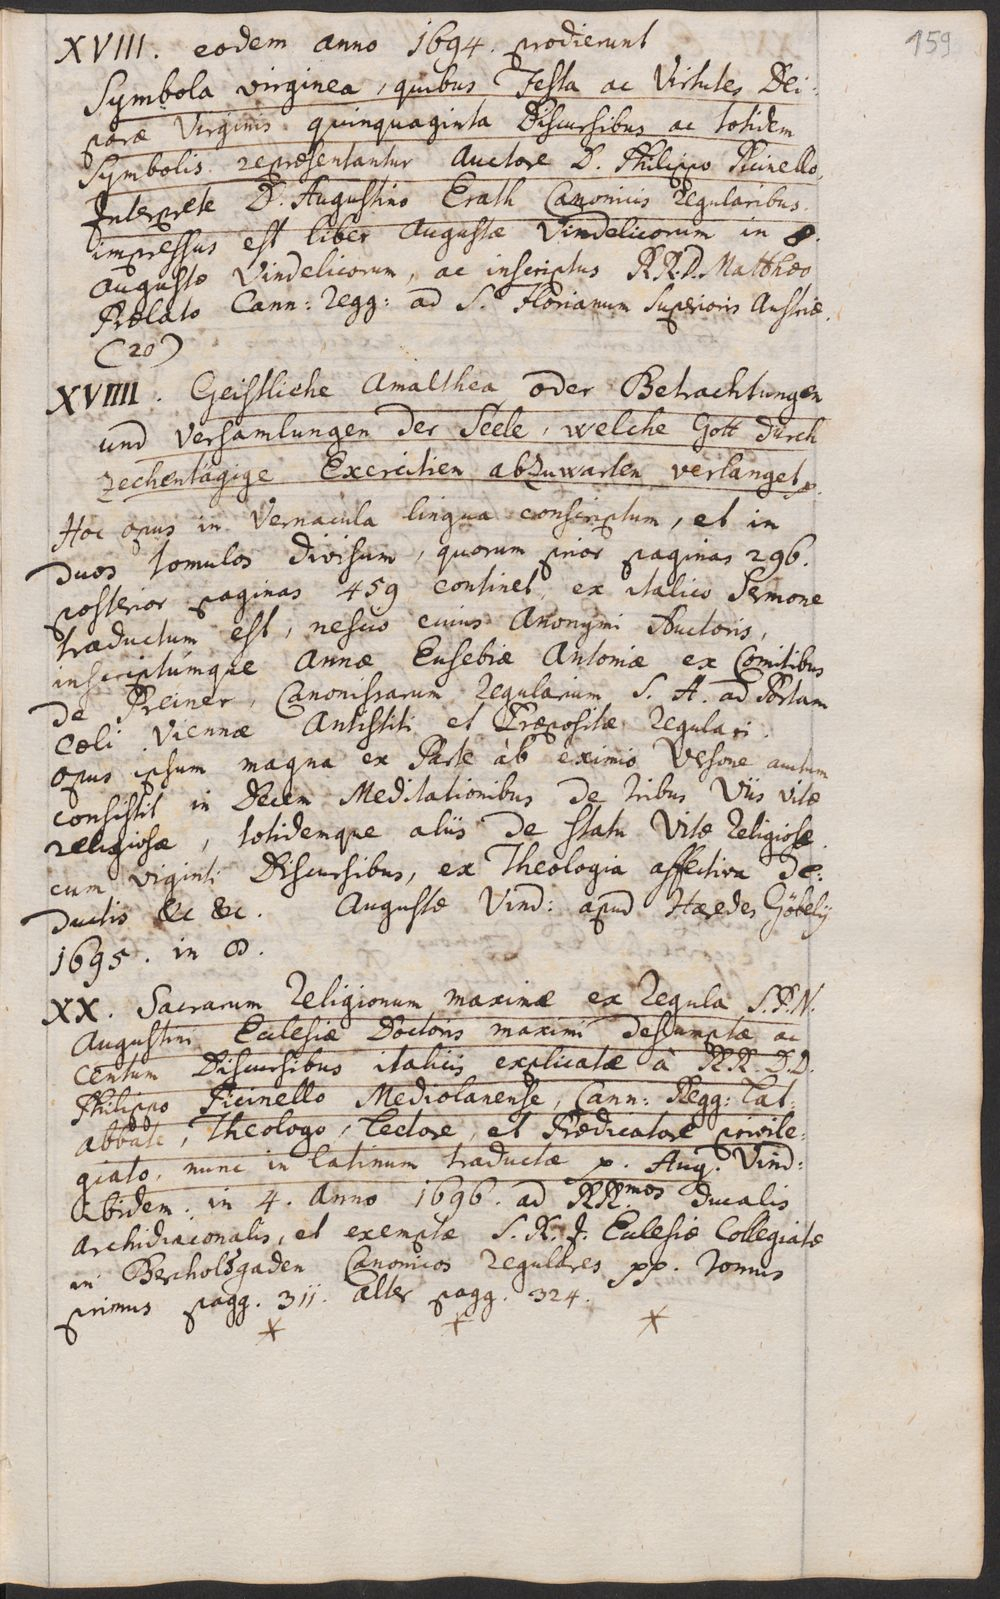 159
XVIII. eodem anno 1694. prodierunt
Symbola virginea, quibus Festa ac Virtutes Dei:
paræ Virginis quinquaginta Discursibus ac totidem
Symbolis repræsentantur Auctore D. Philippo Picinello,
Interprete D. Augustino Erath Canonicis Regularibus.
impressus est liber Augustæ Vindelicorum in 8.
Augustæ Vindelicorum, ac inscriptus RR.D. Matthæo
Prælato Cann: Regg: ad S. Florianum Superioris Austriæ.
(20)
XVIIII. Geistliche Amalthea oder Betrachtungen
und Versamlungen der Seele, welche Gott durch
zechentägige Exercitien abzuwarten verlanget p.
Hoc opus in Vernacula lingua conscriptum, et in
duos tomulos divisum, quorum prior paginas 296.
posterior paginas 459 continet, ex italico Sermone
traductum est, nescio cuius Anonymi Auctoris,
inscriptúmque Annæ Eusebiæ Antoniæ ex Comitibus
de Preiner, Canonissarum Regularium S. A. ad Portam
Cœli Viennæ Antistiti et Præpositæ Regulari.
Opus ipsum magna ex Parte àb eximio Vefone autum
consistit in Decem Meditationibus de tribus Viis vitæ
religiosæ, totidemque aliis de statu Vitæ Religiosæ
cum viginti Discursibus, ex Theologia affectiva de:
ductis &c &c. Augustæ Vind: apud Hæredes Göbelÿ
1695. in 8.
XX. Sacrarum Religionum maximæ ex Regula S.P.N.
Augustini Ecclesiæ Doctoris maximi desumptæ ac
centum Discursibus italicis explicatæ à RR.D.D.
Philippo Picinello Mediolanense, Cann: Regg: Lat:
abbate, Theologo, Lectore, et Prædicatore privile:
giato, nunc in latinum traductæ p. Aug. Vind:
ibidem. in 4. Anno 1696. ad RR.mos Ducalis
Archidiaconalis, et exemptæ S. R. J. Ecclesiæ Collegiatæ
in Bercholsgaden Canonicos Regulares pp. Tomus
primus pagg. 311. alter pagg. 324.
* * *